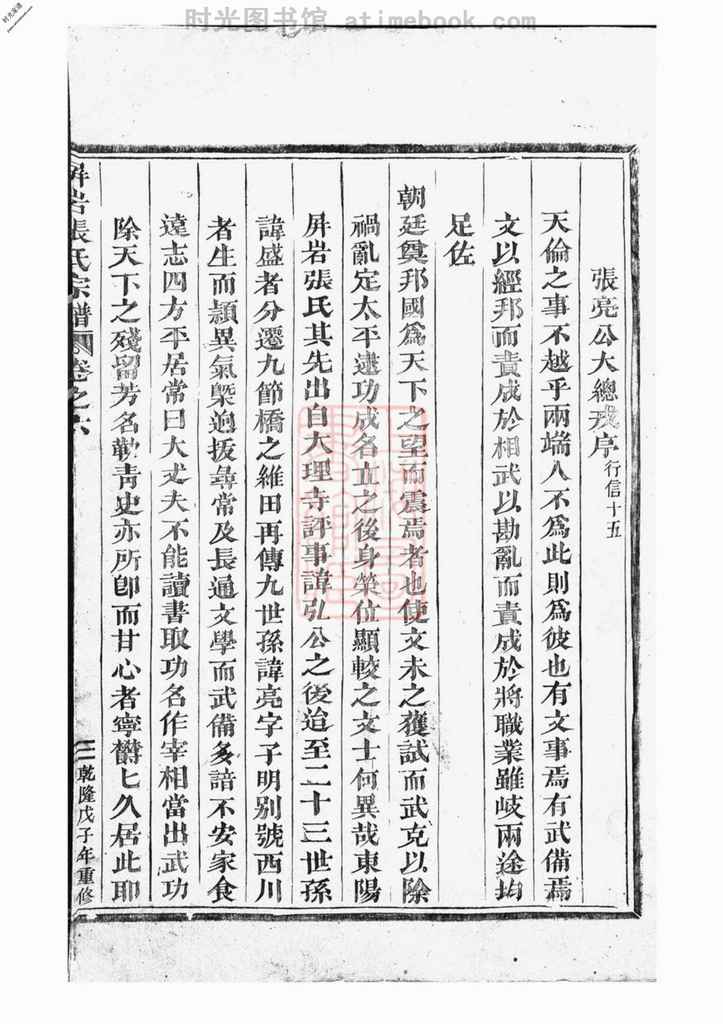 时光图书馆 - atimebook.com
时光图书馆
張亮公大總戎序 行信十五
天倫之事不越乎兩端人不爲此則爲彼也有文事焉有武備焉
文以經邦而責成於相武以勘亂而責成於將職業雖岐兩途均
足佐
朝廷奠邦國爲天下之望而震焉者也使文未之獲試而武克以除
禍亂定太平逮功成名立之後身榮位顯較之文士何異哉東陽
屏岩張氏其先出自大理寺評事諱弘公之後迨至二十三世孫
諱盛者分遷九節橋之維田再傳九世孫諱亮字子明別號西川
者生而穎異氣槩逈拔尋常及長通文學而武備多諳不安家食
遠志四方平居常曰大丈夫不能讀書取功名作宰相當出武功
除天下之殘留芳名勒青史亦所卽而甘心者寧欝匕久居此耶
屏岩張氏宗譜 卷之六
二 乾隆戊子年重修